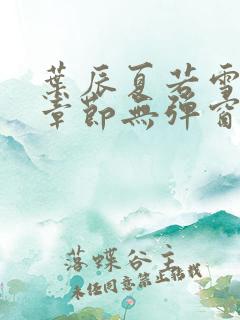 葉辰夏若雪
章節無彈窗
落蝶谷主
未经同意禁止转载